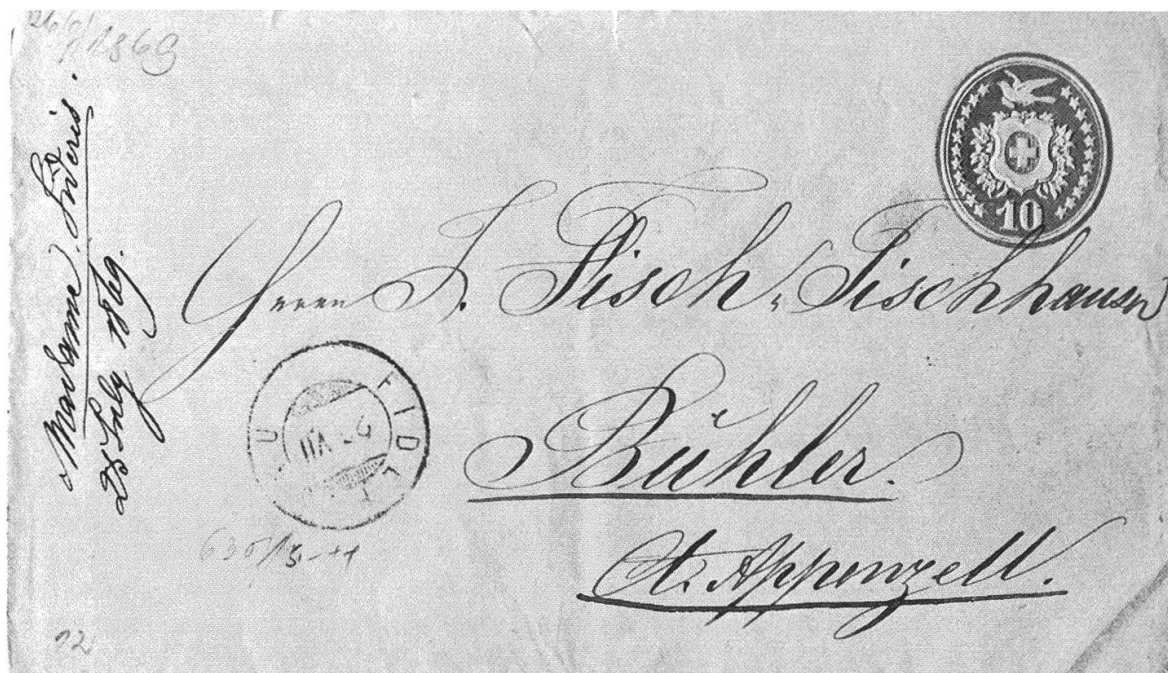 1869
Madame Fideris.
25 July 1869.
10
Herrn J. Fisch, Fischhauser
Bühler.
Ct. Appenzell.
VII
72